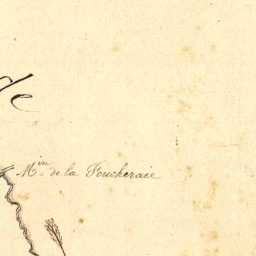 de
Min de la Foucheraie